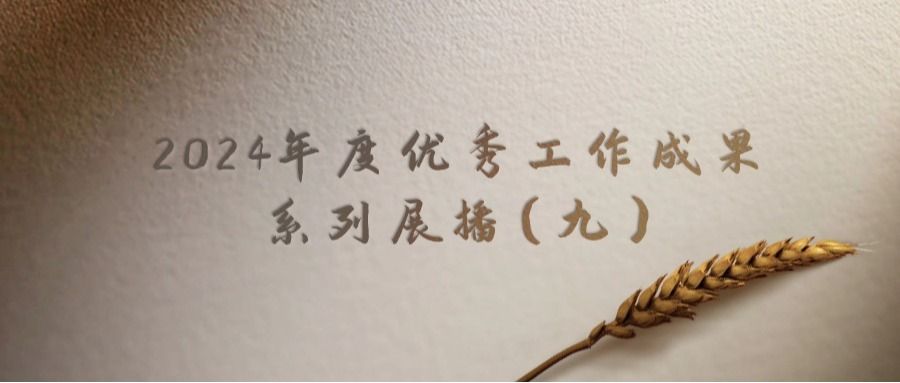 2024年度优秀工作成果
系列展播(九)